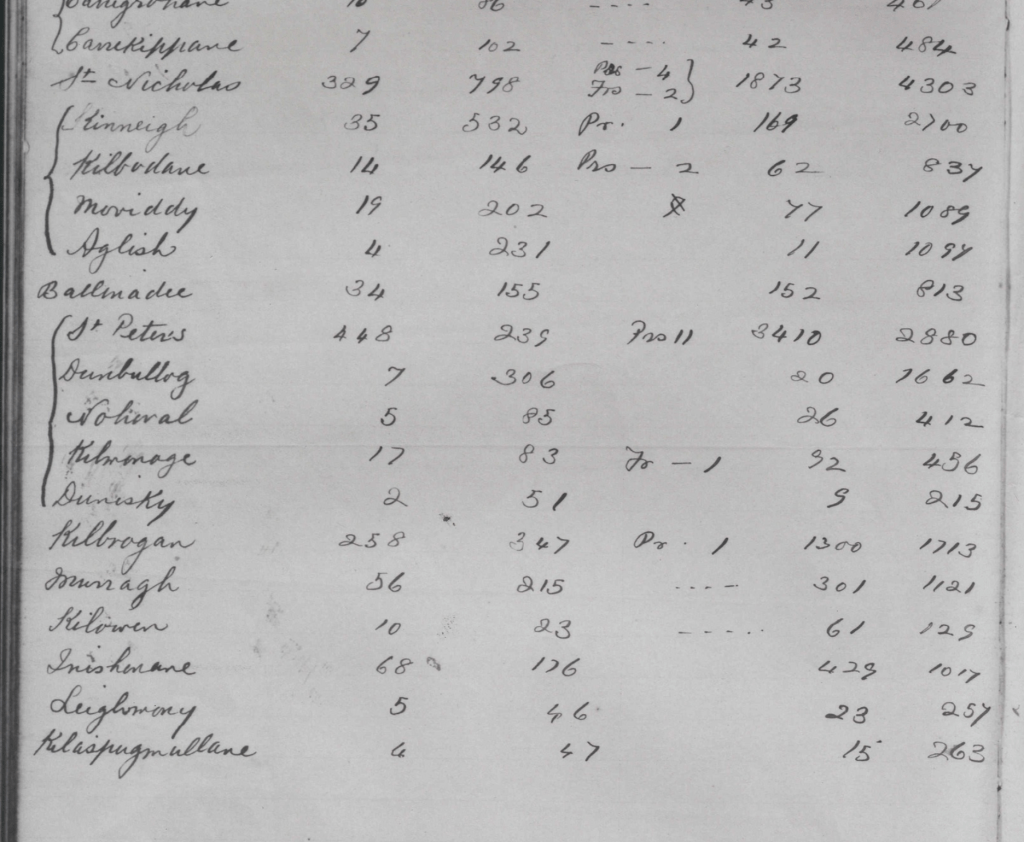 Canigrohane 10 86 ---- 43 461
Carrekippane 7 102 ---- 42 484
St Nicholas 329 798 Prs - 4 Frs - 2 } 1873 4303
Kinneigh 35 532 Pr. 1 169 2700
Kilbodane 14 146 Prs - 2 62 837
Moviddy 19 202 X 77 1089
Aglish 4 231 11 1097
Ballinadee 34 155 152 813
St Peters 448 239 Prs 11 3410 2880
Dunbullog 7 306 20 1662
Nohoval 5 85 26 412
Kilmonoge 17 83 Fr - 1 92 456
Dunisky 2 51 9 215
Kilbrogan 258 347 Pr. 1 1300 1713
Murragh 56 215 ---- 301 1121
Kilowen 10 23 ----- 61 129
Inishonane 68 176 429 1017
Leighmony 5 46 23 257
Kilaspugmullane 4 47 15 263